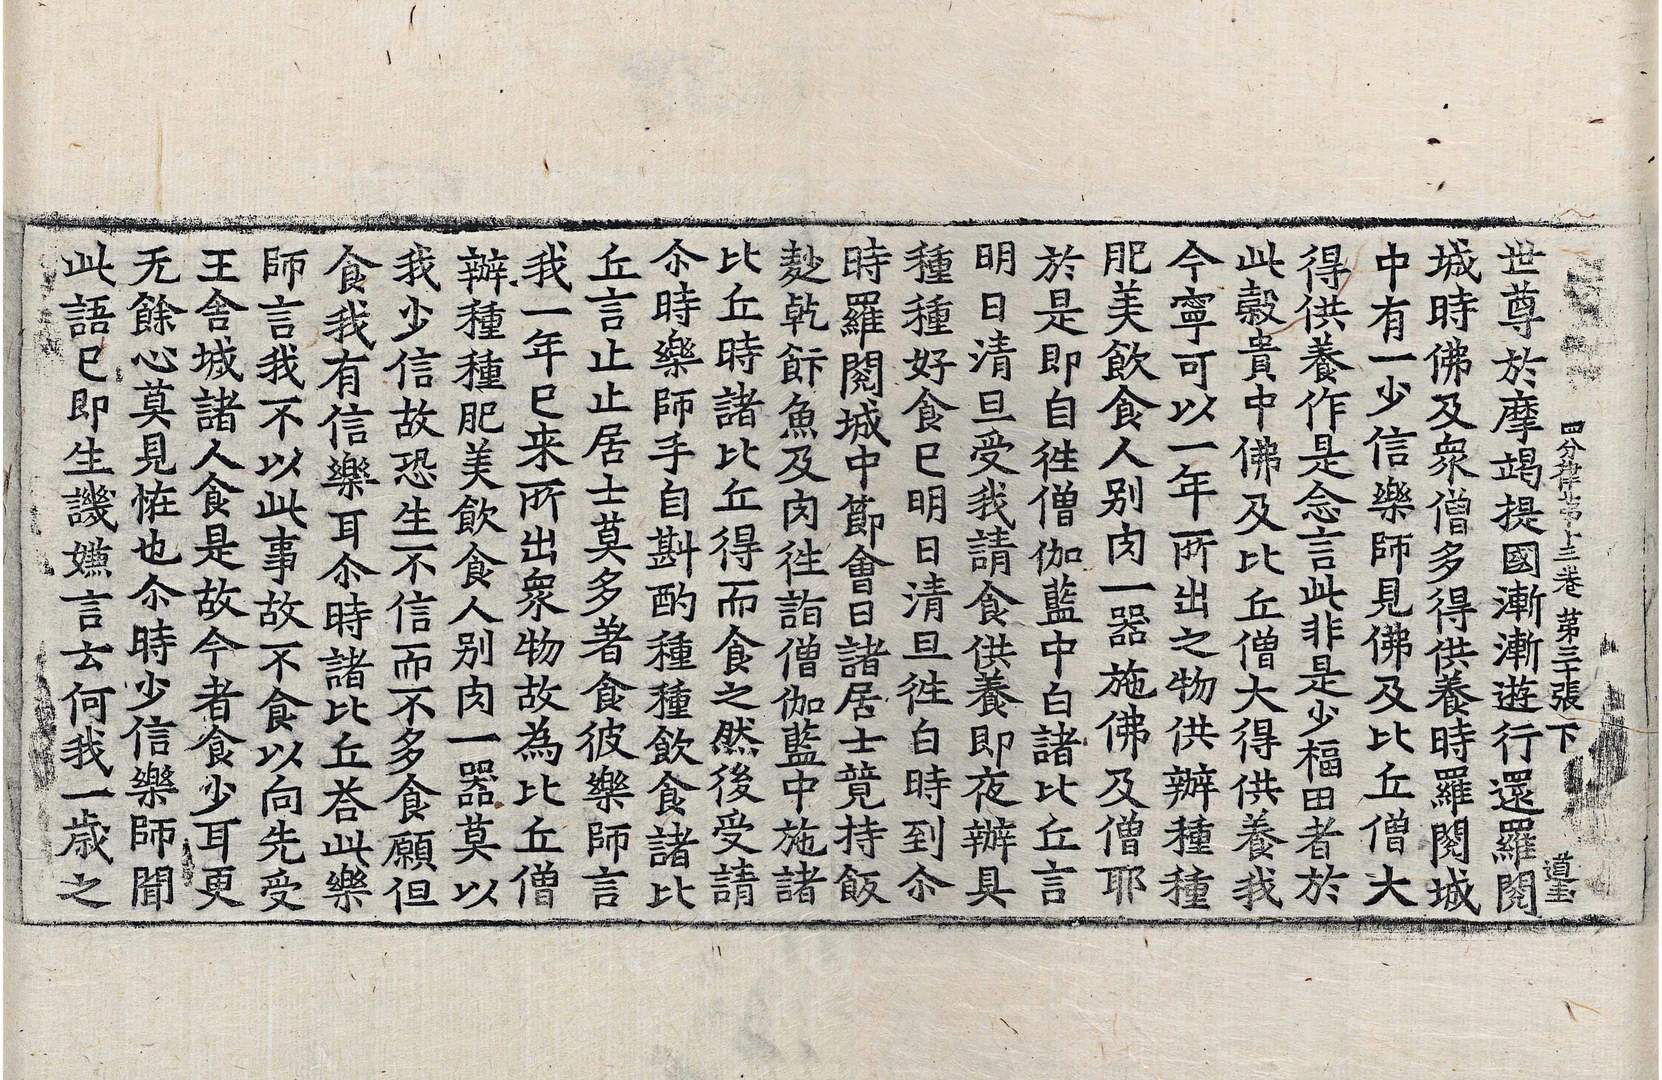 四分律第十三卷 第三十張 下 道𡊮
世尊於摩竭提國漸漸遊行還羅閱
城時佛及衆僧多得供養時羅閱城
中有一少信樂師見佛及比丘僧大
得供養作是念言此非是少福田者於
此穀貴中佛及比丘僧大得供養我
今寧可以一年所出之物供辦種種
肥美飲食人別肉一器施佛及僧耶
於是即自往僧伽藍中白諸比丘言
明日清旦受我請食供養即夜辦具
種種好食已明日清旦往白時到尒
時羅閱城中節會日諸居士競持飯
麨乹餅魚及肉往詣僧伽藍中施諸
比丘時諸比丘得而食之然後受請
尒時樂師手自斟酌種種飲食諸比
丘言止止居士莫多著食彼樂師言
我一年已来所出衆物故為比丘僧
辦種種肥美飲食人別肉一器莫以
我少信故恐生不信而不多食願但
食我有信樂耳尒時諸比丘荅此樂
師言我不以此事故不食以向先受
王舍城諸人食是故今者食少耳更
无餘心莫見恠也尒時少信樂師聞
此語已即生譏嫌言云何我一歳之